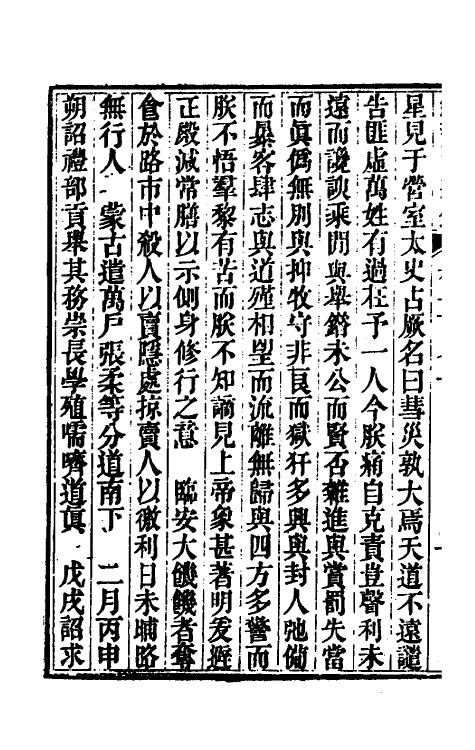 星見于營室太史占厥名曰彗災孰大焉天道不遠譴
告匪虛萬姓有過在予一人今朕痛自克責豈聲利未
遠而讒諛乘閒與舉錯未公而賢否雜進與賞罰失當
而眞僞無別與抑牧守非良而獄犴多興與封人弛備
而暴客肆志與道殣相望而流離無歸與四方多警而
朕不悟羣黎有苦而朕不知謫見上帝象甚著明爰避
正殿減常膳以示側身修行之意　臨安大饑饑者奪
食於路市中殺人以賣隱處掠賣人以徼利日未晡路
無行人　蒙古遣萬戶張柔等分道南下　二月丙申
朔詔禮部貢舉其務崇長學殖嚅嚌道眞　戊戌詔求